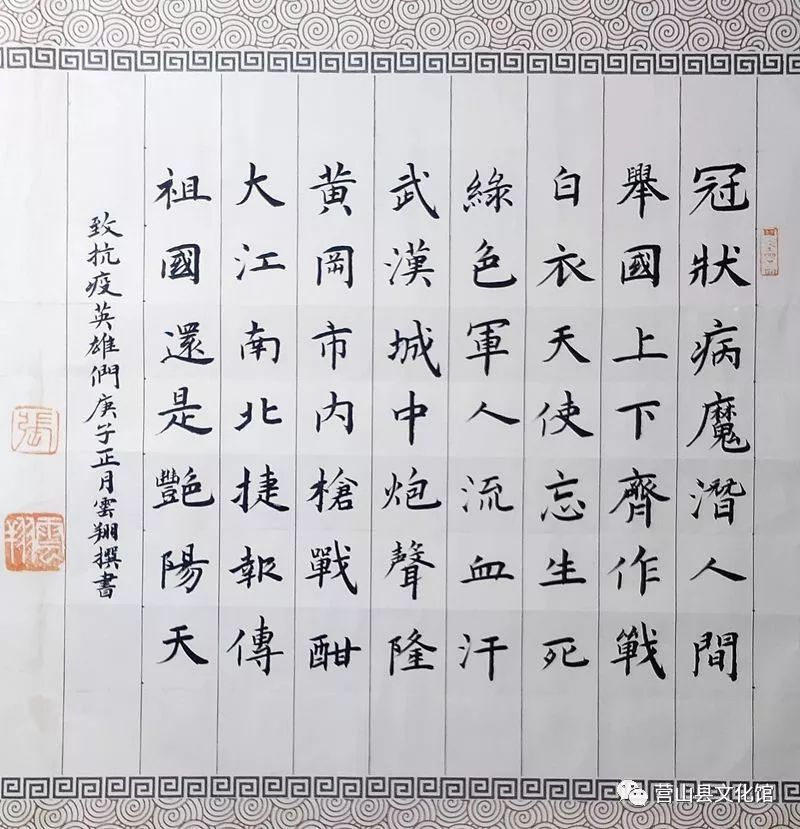 冠狀病魔潛人間
舉國上下齊作戰
白衣天使忘生死
綠色軍人流血汗
武漢城中炮聲隆
黃岡市內槍戰酣
大江南北捷報傳
祖國還是艷陽天
致抗疫英雄們庚子正月雲翔撰書
張
雲翔
营山县文化馆